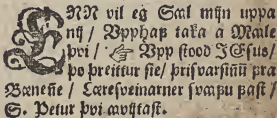 ENN vil eg Sæl mijn uppa
nij / Vpphaz taka a Mæle
þvi / ☞ Vpp stood JEsus /
þo þreittur sie / þrisvarsiñũ fra
Bæneñe / Læresveinarner svæfu fast /
S. Petur þvi avijtast.